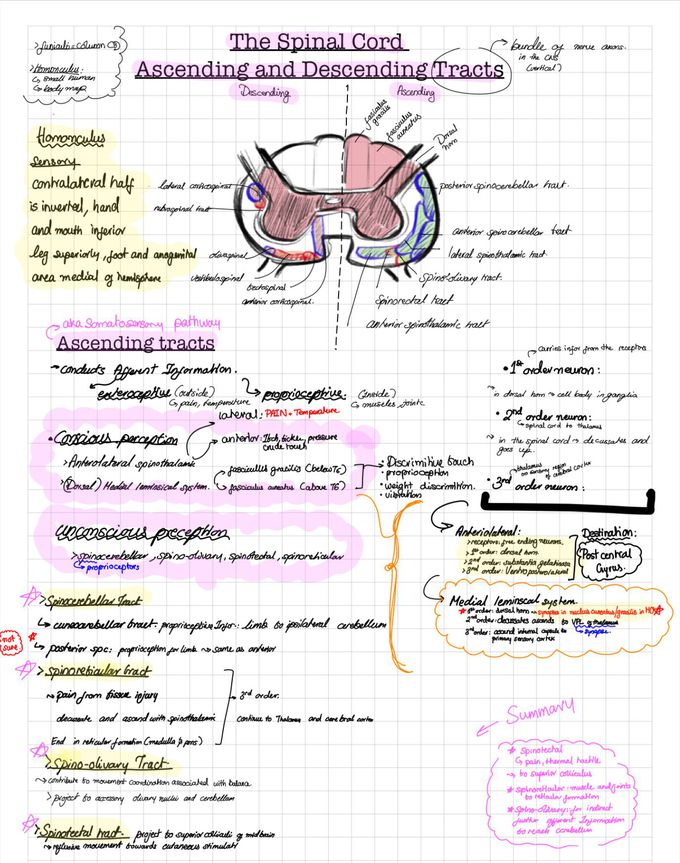 > funiculi = column
> Homonculus:
↳ small human
↳ body map
The Spinal Cord
Ascending and Descending Tracts
bundle of nerve axons
in the CNS
(vertical)
Descending
Ascending
fasciculus gracilis
fasciculus cuneatus
Dorsal horn
Homonculus
Sensory
contralateral half
is inverted, hand
and mouth inferior
leg superiorly, foot and anogenital
area medial of hemisphere
lateral corticospinal
rubrospinal tract
olivospinal
vestibulospinal
tectospinal
anterior corticospinal
posterior spinocerebellar tract
anterior spinocerebellar tract
lateral spinothalamic tract
Spino-olivary tract
Spinotectal tract
anterior spinothalamic tract
aka Somatosensory pathway
Ascending tracts
conducts Afferent Information.
exteroceptive (outside)
↳ pain, temperature
proprioceptive (inside)
↳ muscles, joints
lateral: PAIN + Temperature
• Conscious perception
anterior: Itch, tickle, pressure
crude touch
> Anterolateral spinothalamic
> (Dorsal) Medial lemniscal system.
fascicullus gracilis (below T6)
fasciculus cuneatus (above T6)
• Discrimitive touch
• proprioception
• weight discrimation.
• vibration
Unconscious preception
> spinocerebellar, spino-olivary, spinotectal, spinoreticular
↳ proprioceptors
carries infor from the receptors
• 1st order neuron:
in dorsal horn → cell body in ganglia
• 2nd order neuron:
spinal cord to thalamus
in the spinal cord → decussates and
goes up.
thalamus to sensory region of cerebral cortex
• 3rd order neuron:
Anteriolateral:
> receptors: free ending neuron,
> 1st order: dorsal horn
> 2nd order: substantia gelatinosa
> 3rd order: Ventro posterolateral
Destination:
Post central
Gyrus.
Medial leminscal system.
1st order: dorsal horn → synapse in nucleus cuneatus/gracilis in MO
2nd order: decussates ascends to VPL of thalamus
↳ synapse.
3rd order: ascend internal capsule to
primary sensory cortex
> Spinocerebellar Tract
proprioceptive Infor: limb to ipsilateral cerebellum
not sure
posterior spc: proprioception for limb → same as anterior
> spinoreticular tract
pain from tissue injury
decussate and ascend with spinothalamic
End in reticular formation (medulla & pons)
→ 3rd order.
continue to Thalamus and cerebral cortex
> Spino-olivary Tract
contribute to movement coordination associated with balance
> project to accessory olivary nuclei and cerebellum
> Spinotectal tract. project to superior colliculi of midbrain
reflexive movement towards cutaneous stimulati
Summary
* Spinotectal
↳ pain, thermal tactile
to superior colliculus
* Spinoreticular: muscle and joints
to reticular formation
* Spino-Olivary: for indirect
further afferent Information
to reach cerebellum